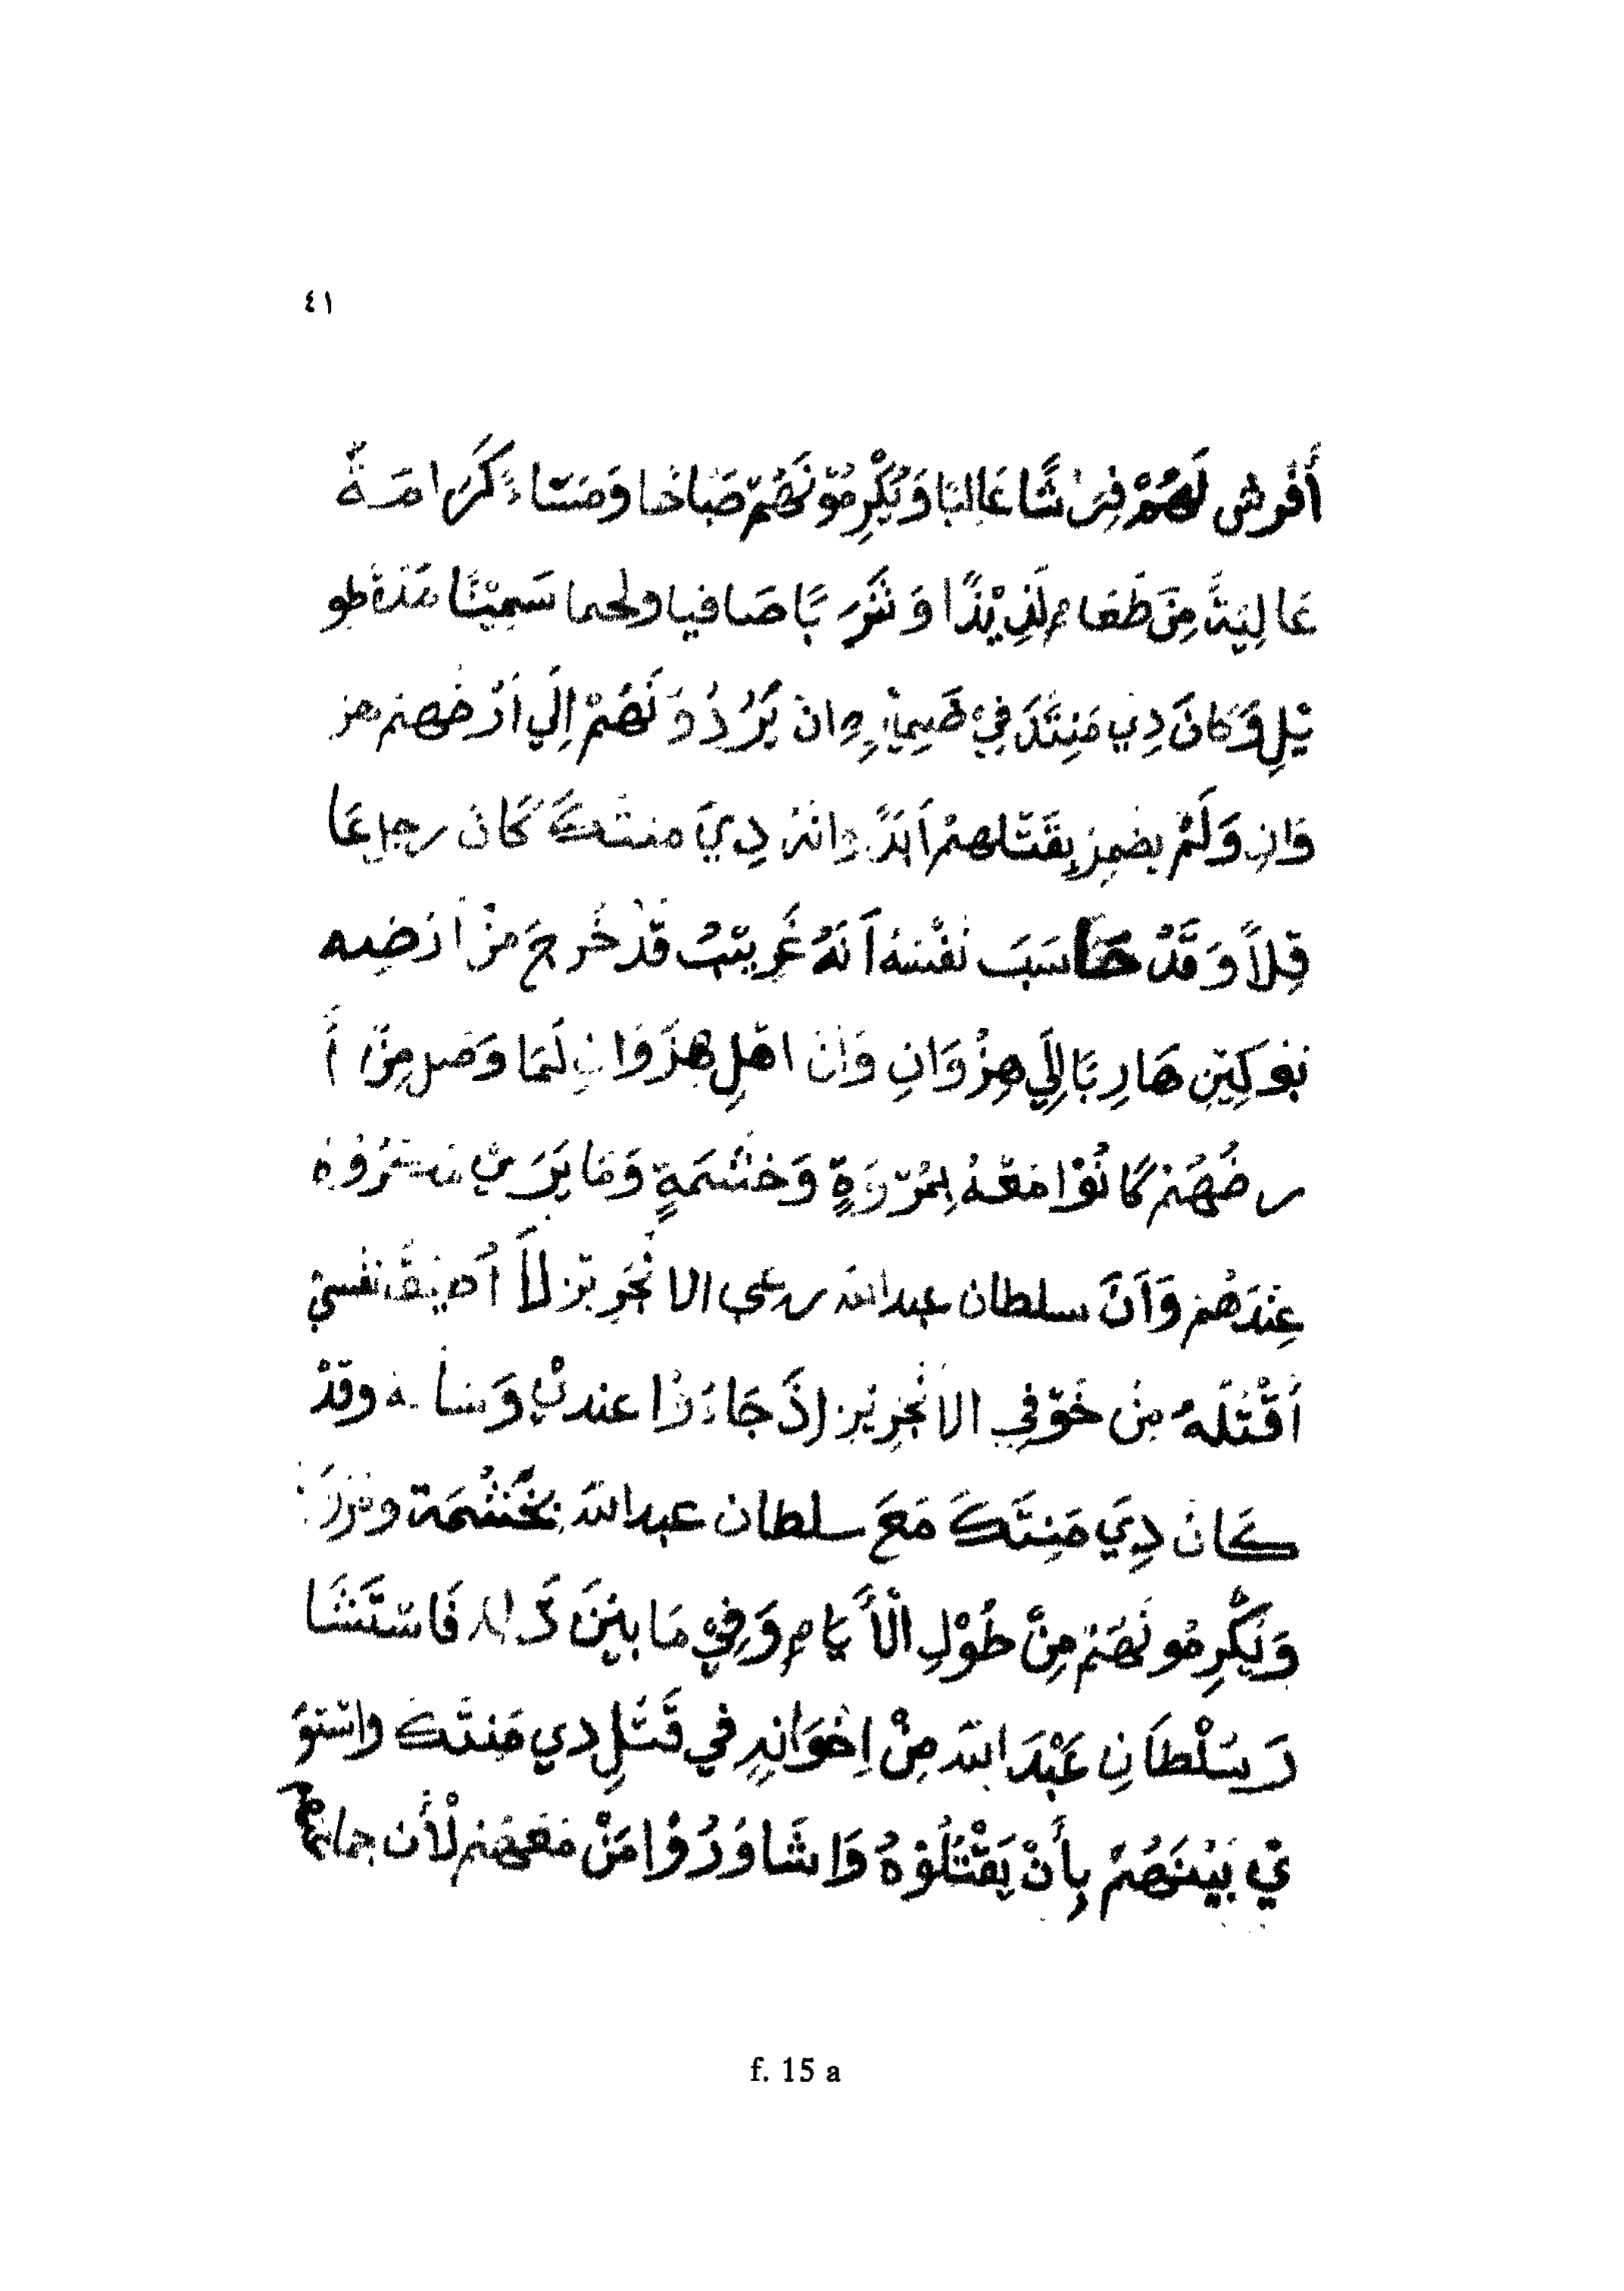 ٤١
أَفْرش لَهُمْ فِرَاشًا عَالِيًا وَيُكْرِمُوْنَهُمْ صَبَاحًا وَمَسَاءً كَرَامَةً
عَالِيَةً مِنْ طَعَامٍ لَذِيْذًا وَشَرَبًا صَافيا ولحما سَمِيْنًا مُدَّةً طو
يْلِ وَكَانَ دِيْ مَنِتَكَ فِيْ ضَمِيْرِهِ ان يَرُدُوَنَهُمْ اِلَي اَرْضهم هز
وَانِ وَلَمْ يضمِرْ بِقَتْلهمْ اَبَدًا وانه دِيَ منتكَ كَانَ رجل عَا
قِلاً وَقَدْ حَاسَبَ نَفْسَهُ اَنَهُ غَرِيْبُ قَدْ خَرجَ مِنْ اَرْضِه
نَعَوكِيْنِ هَارِبًا اِلَي هِزْوَانِ وَاَنَ اهْلِ هِزْوَانِ لَمَا وَصَل مِنْ أَ
رضُهُمْ كَانُوْا مَعَهُ بِمُرّوَةٍ وَحشْمَةٍ وَمَا يَرَيْ
عِنْدَهُمْ وَاَنَّ سلطان عبد الله رعي الانْجَرِيْز لَا اُضِيْفَ نَفْسِيْ
اَقْتُلَهُ مِنْ خَوْفِي الانْجِرِيْز اِذَ جَاءُوْا عندي وَسَأ له وقدْ
كَانَ دِيَ مَنِتَكَ مَعَ سلطان عبد الله بحُشْمَة
وَيُكْرِمُونَهُمْ مِنْ طُوْلِ الْأَيَامِ وَفِيْ مَا بَيْنَ ذَلك فَاسْتَشَا
رَ سُلْطَانِ عَبْدَ الله مِنْ اِخْوَانِهِ في قَتْلِ دِي مَنِتَكَ واسْتوَ
يْ بَيْنَهُمْ بِأَنْ يَقْتُلُوْهُ وَا شَاوَرُوْا مَنْ مَعَهُمْ لْأَن جماعة
f. 15 a